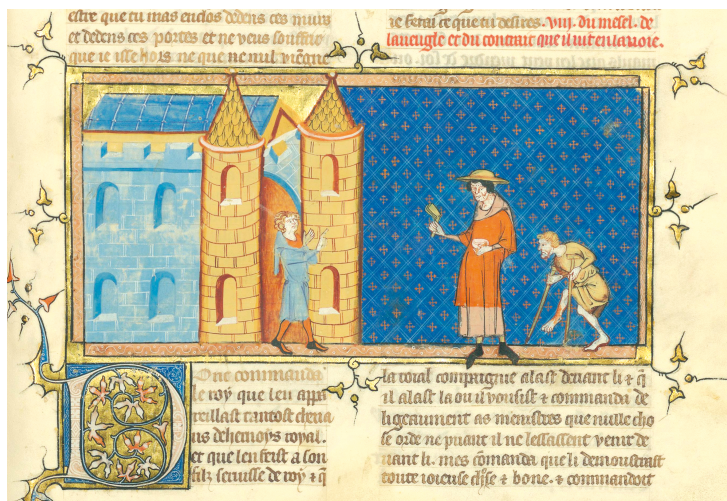 estre que tu mas enclos dedens ces murs
et dedens ces portes et ne veus souffrir
que ie isse hors ne que ne nul viengne
ie ferai ce que tu desires. viij. du mesel. de
laueugle et du contrait que il uit en la uoie.
Donc commanda
le roy que len appa
reillast tantost cheua
us de hernoys royal.
et que len feist a son
filz seruise de roy ⁊ q̄
la roial compaignie alast deuant li ⁊ q̄
il alast la ou il vousist ⁊ commanda di
ligeaument as menistres que nulle cho
se orde ne puant il ne lessassent venir de
uant li. mes cōmanda que li demoustrast
toute ioieuse chose ⁊ bone. ⁊ commandoit